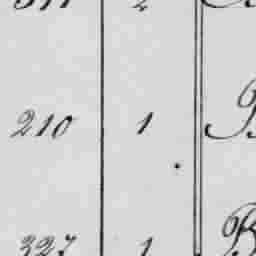 210 1 B
327 1 B